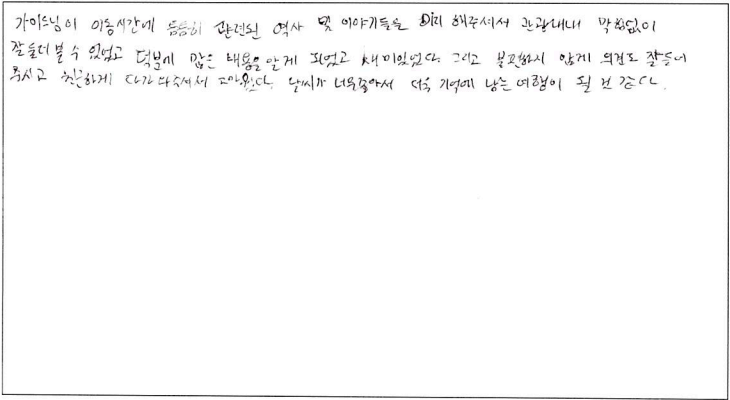 가이드님이 이동시간에 틈틈히 관련된 역사 및 이야기들을 미리 해주셔서 관광내내 막힘없이
잘 둘러볼 수 있었고 덕분에 많은 내용을 알게 되었고 재미있었다. 그리고 불편하지 않게 의견도 잘 들어
주시고 친근하게 다가와주셔서 고마웠다. 날씨가 너무좋아서 더욱 기억에 남는 여행이 될 것 같다.